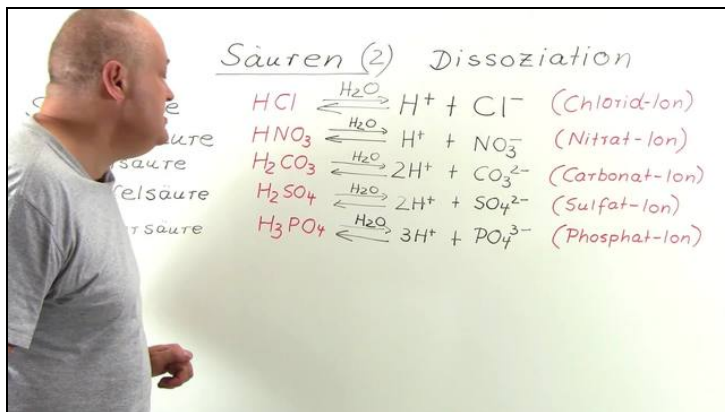 Säuren (2) Dissoziation
HCl ⇌ H₂O H⁺ + Cl⁻ (Chlorid-Ion)
HNO₃ ⇌ H₂O H⁺ + NO₃⁻ (Nitrat-Ion)
H₂CO₃ ⇌ H₂O 2H⁺ + CO₃²⁻ (Carbonat-Ion)
H₂SO₄ ⇌ H₂O 2H⁺ + SO₄²⁻ (Sulfat-Ion)
H₃PO₄ ⇌ H₂O 3H⁺ + PO₄³⁻ (Phosphat-Ion)